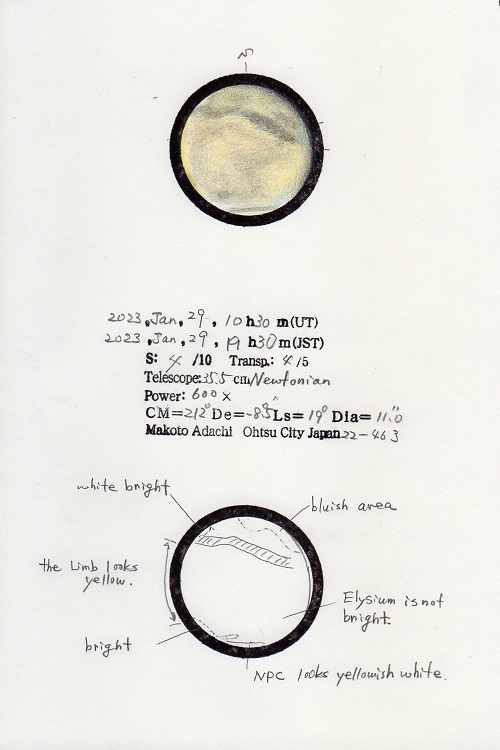 N
2023, Jan, 29, 10 h30 m(UT)
2023, Jan, 29, 19 h30m(JST)
S: 4 /10 Transp.: 4/5
Telescope: 35.5 cm/Newtonian
Power: 600 x
CM=212° De=-8.5° Ls= 19° Dia= 11.0"
Makoto Adachi Ohtsu City Japan 22-463
white bright
bluish area
the Limb looks
yellow.
Elysium is not
bright.
bright
NPC looks yellowish white.